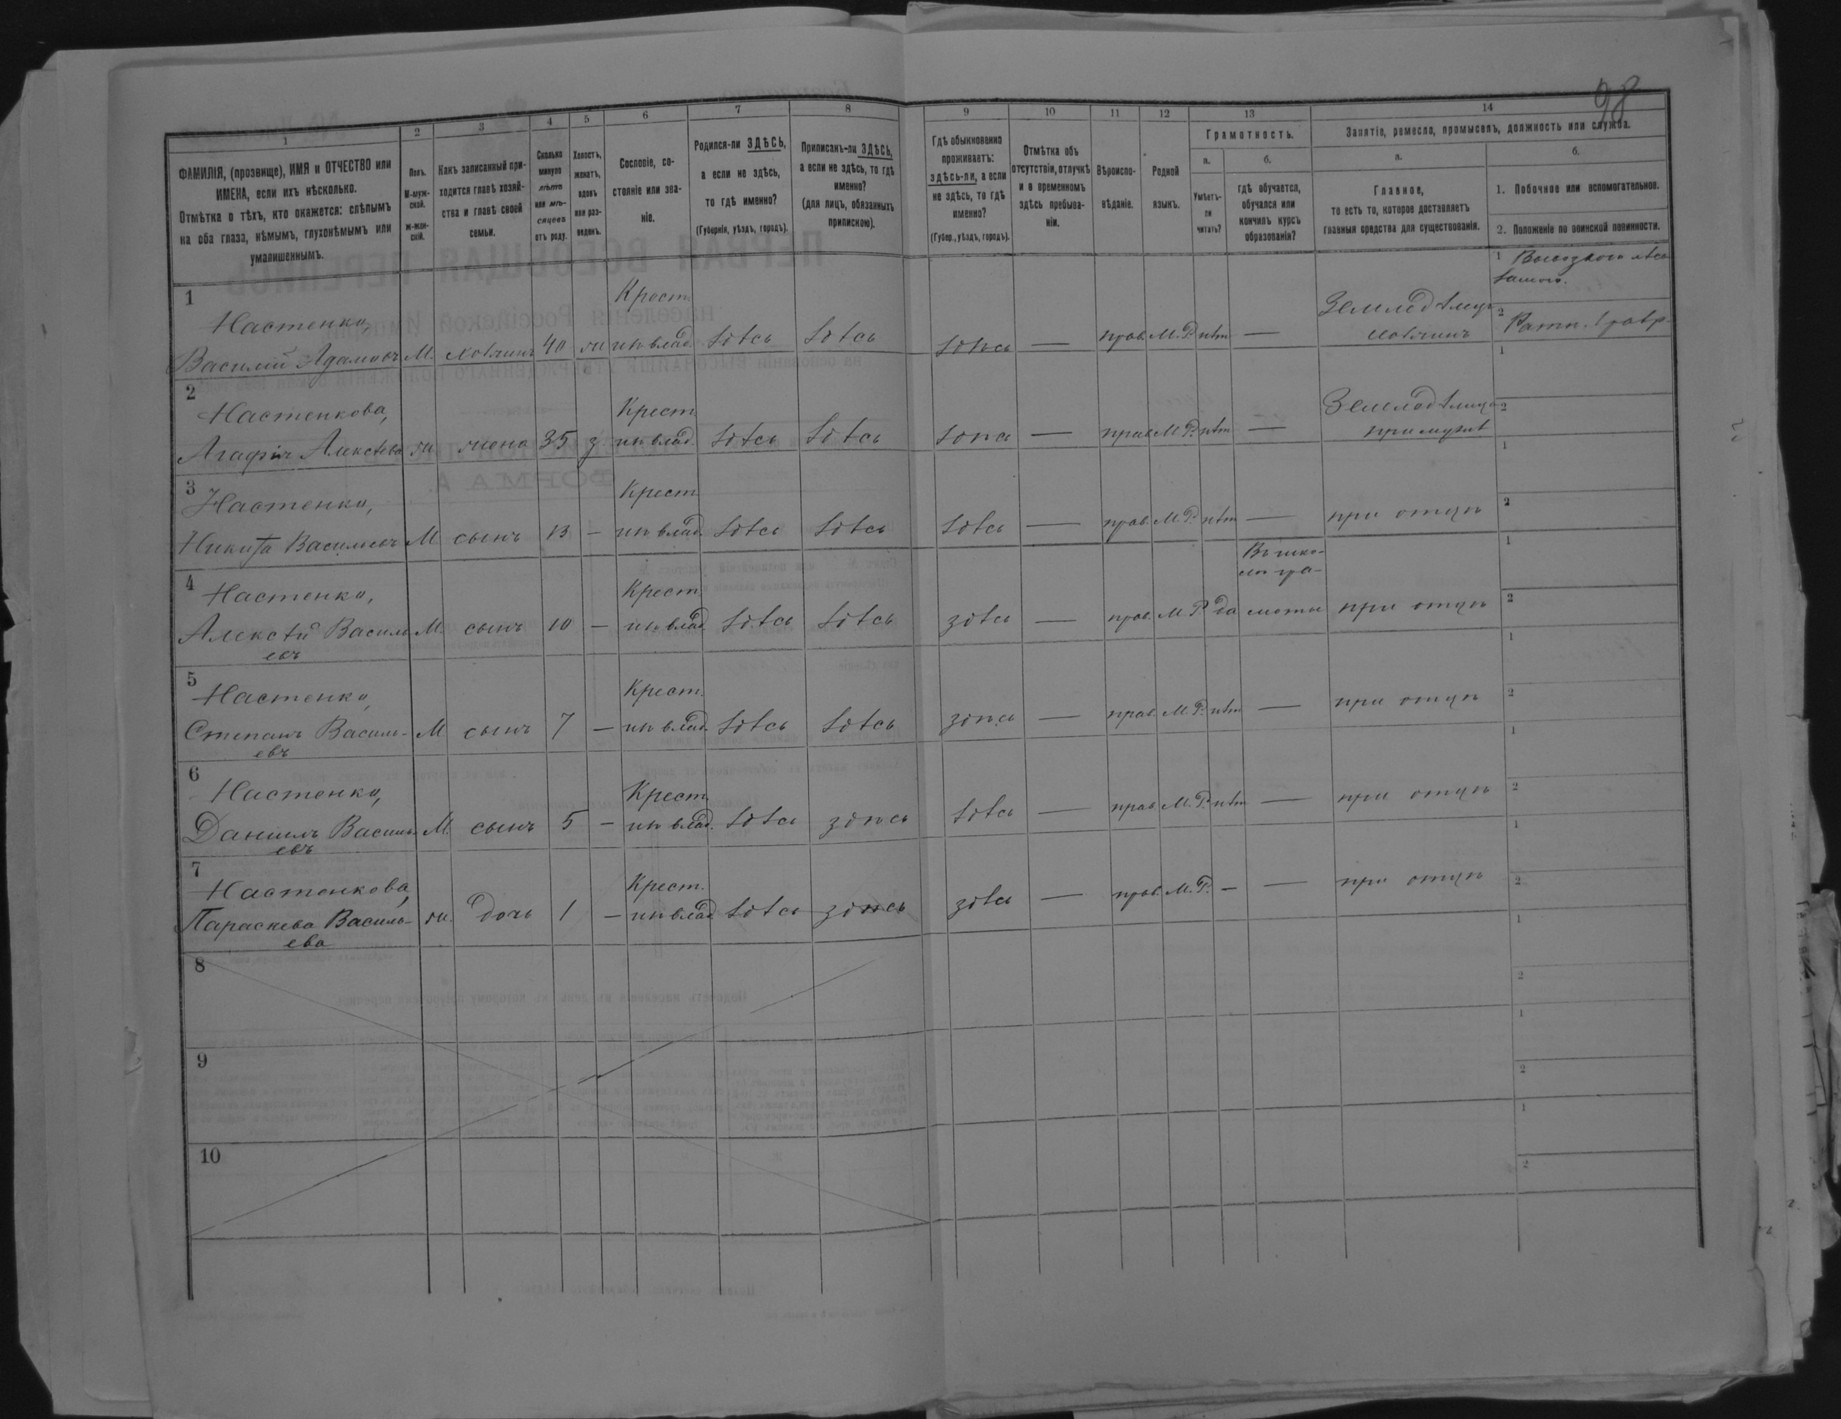 98
1
2
3
4
5
6
7
8
9
10
11
12
13
14
ФАМИЛІЯ, (прозвище), ИМЯ и ОТЧЕСТВО или
ИМЕНА, если ихъ нѣсколько.
Отмѣтка о тѣхъ, кто окажется: слѣпымъ
на оба глаза, нѣмымъ, глухонѣмымъ или
умалишеннымъ.
Полъ.
М-муж-
ской.
ж-жен-
скій.
Какъ записанный при-
ходится главѣ хозяй-
ства и главѣ своей
семьи.
Сколько
минуло
лѣтъ
или мѣ-
сяцевъ
отъ роду.
Холостъ,
женатъ,
вдовъ
или раз-
веденъ.
Сословіе, со-
стояніе или зва-
ніе.
Родился-ли ЗДѢСЬ,
а если не здѣсь,
то гдѣ именно?
(Губернія, уѣздъ, городъ).
Приписанъ-ли ЗДѢСЬ,
а если не здѣсь, то гдѣ
именно?
(для лицъ, обязанныхъ
припискою).
Гдѣ обыкновенно
проживаетъ:
здѣсь-ли, а если
не здѣсь, то гдѣ
именно?
(Губер., уѣздъ, городъ).
Отмѣтка объ
отсутствіи, отлучкѣ
и о временномъ
здѣсь пребыва-
ніи.
Вѣроиспо-
вѣданіе.
Родной
языкъ.
Грамотность.
а.
Умѣетъ-
ли
читать?
б.
гдѣ обучается,
обучался или
кончилъ курсъ
образованія?
Занятіе, ремесло, промыселъ, должность или служба.
а.
Главное,
то есть то, которое доставляетъ
главныя средства для существованія.
б.
1. Побочное или вспомогательное.
2. Положеніе по воинской повинности.
1
Настенко,
Василій Адамовъ М. хозяинъ 40 ж
Крест.
изъ влад. здѣсь здѣсь здѣсь — прав. М.Р. нѣт —
Земледѣлецъ
хозяинъ
1
2
2
Настенкова,
Агафія Алексѣева ж. жена 35 з
Крест.
изъ влад. здѣсь здѣсь здѣсь — прав. М.Р. нѣт —
Земледѣлица
при мужѣ
1
2
3
Настенко,
Никита Васильевъ М сынъ 13 —
Крест.
изъ влад. здѣсь здѣсь здѣсь — прав. М.Р. нѣт — при отцѣ
1
2
4
Настенко,
Алексѣй Василь-
евъ
М. сынъ 10 —
Крест.
изъ влад. здѣсь здѣсь здѣсь — прав. М.Р. да
Въ шко-
лѣ гра-
моты при отцѣ
1
2
5
Настенко,
Степанъ Василь-
евъ
М сынъ 7 —
Крест.
изъ влад. здѣсь здѣсь здѣсь — прав. М.Р. нѣт — при отцѣ
1
2
6
Настенко,
Даніилъ Василь-
евъ
М. сынъ 5 —
Крест.
изъ влад. здѣсь здѣсь здѣсь — прав. М.Р. нѣт — при отцѣ
1
2
7
Настенкова,
Параскева Василь-
ева
ж. дочь 1 —
Крест.
изъ влад. здѣсь здѣсь здѣсь — прав. М.Р. — — при отцѣ
1
2
8
1
2
9
1
2
10
1
2